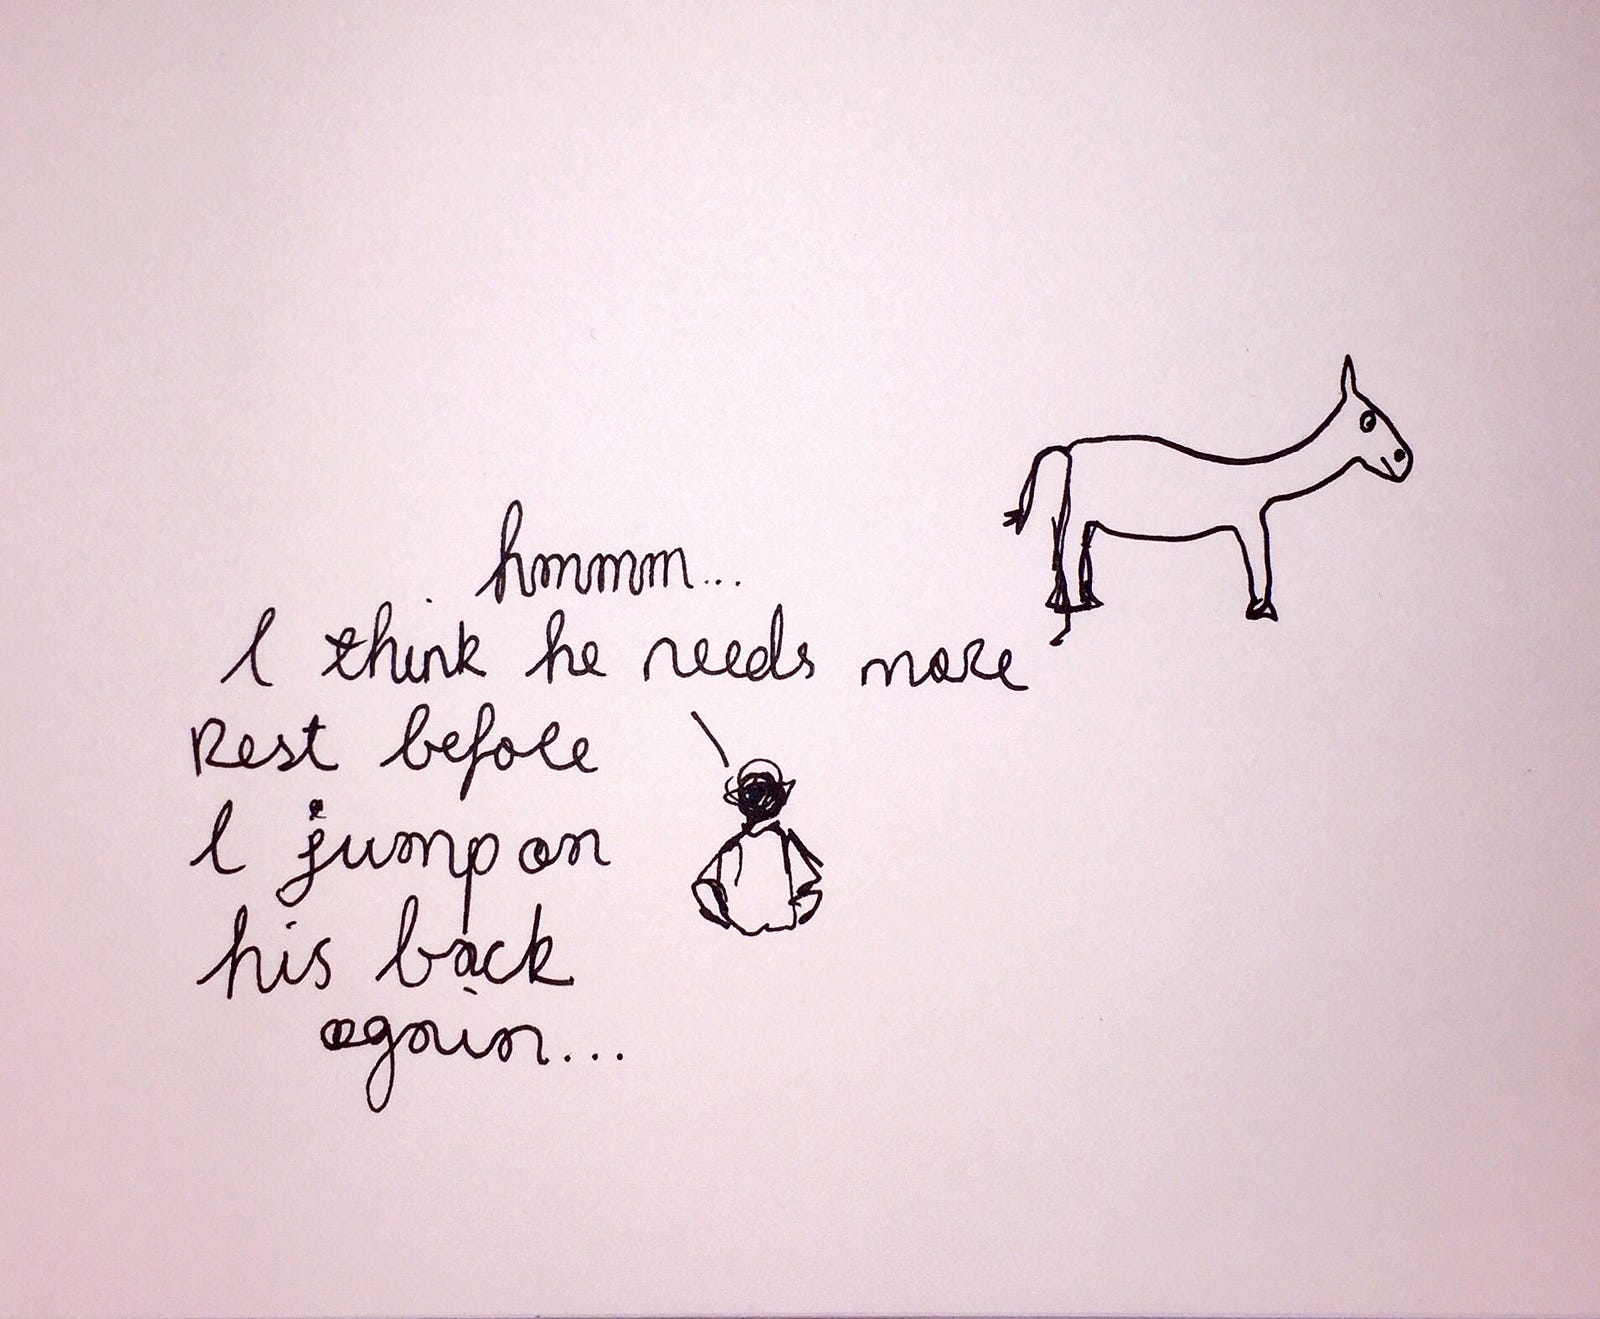 hmmm...
I think he needs more
Rest before
I jump on
his back
again...